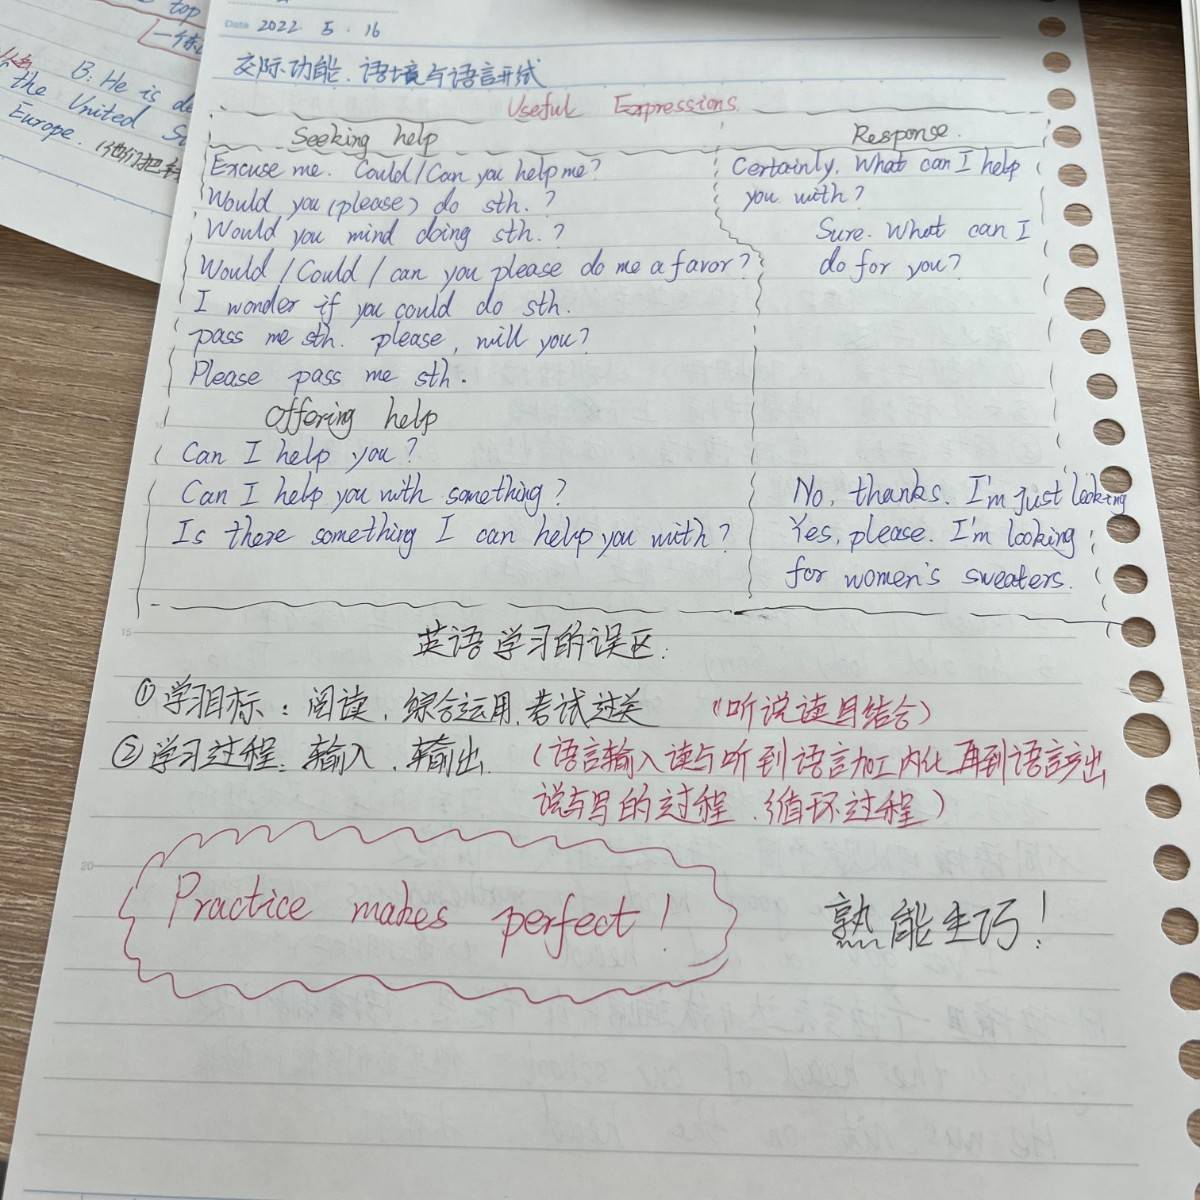 top
B: He is
the United
Europe.
Date 2022. 5. 16
交际功能、语境与语言形式
Useful Expressions
Seeking help Response.
Excuse me. Could/Can you help me? Certainly. What can I help
Would you (please) do sth.? you with?
Would you mind doing sth.? Sure. What can I
Would/Could/can you please do me a favor? do for you?
I wonder if you could do sth.
pass me sth. please, will you?
Please pass me sth.
Offering help
Can I help you?
Can I help you with something? No, thanks. I'm just looking
Is there something I can help you with? Yes, please. I'm looking
for women's sweaters.
15
英语学习的误区:
①学习目标:阅读、综合运用、考试过关 (听说读写结合)
②学习过程:输入、输出. (语言输入读与听到语言加工内化再到语言产出
说与写的过程、循环过程)
20
Practice makes perfect! 熟能生巧!